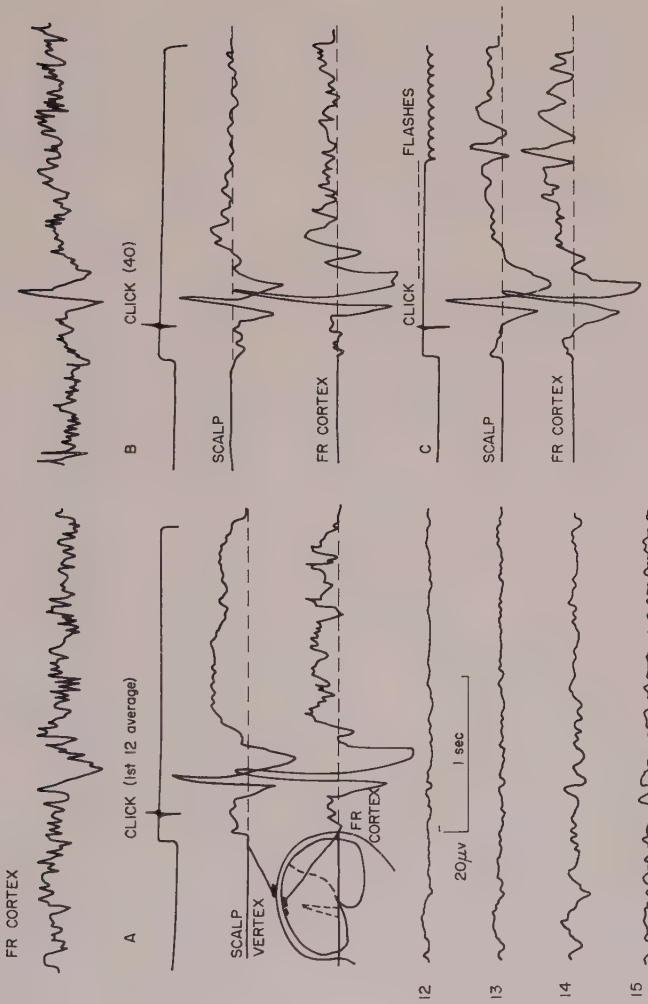 FR CORTEX
A
CLICK (1st 12 average)
SCALP
VERTEX
FR
CORTEX
20μv
1 sec
12
13
14
15
B
CLICK (40)
SCALP
FR CORTEX
C
CLICK
FLASHES
SCALP
FR CORTEX